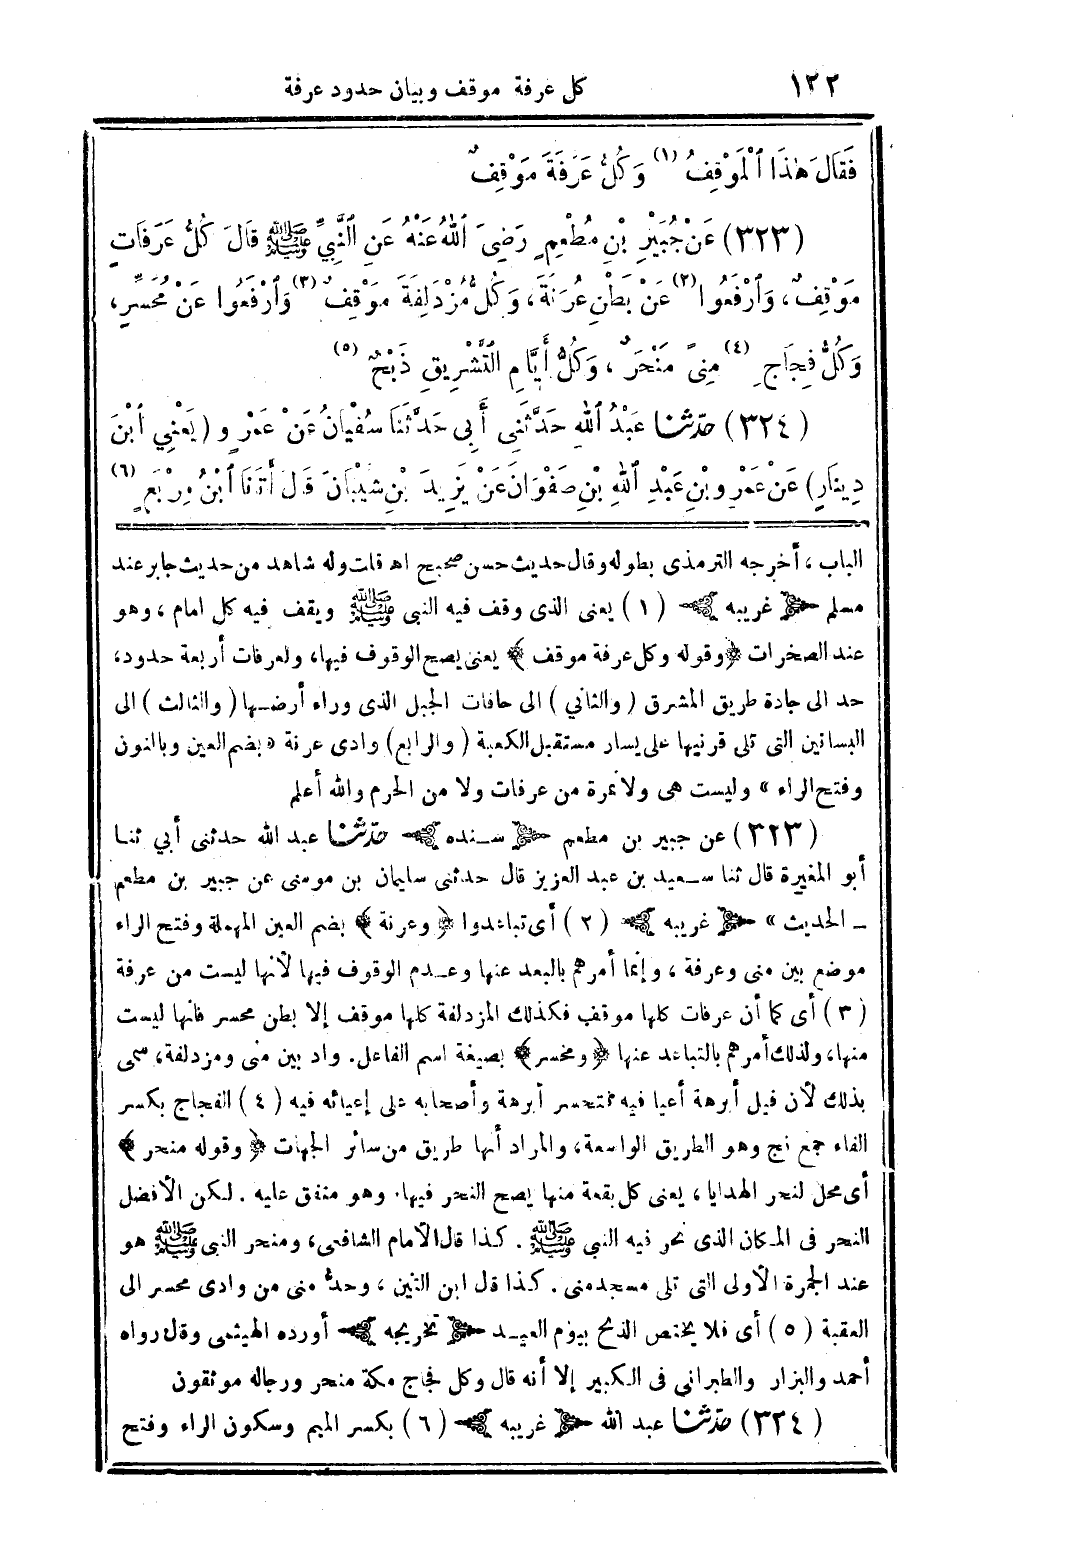 ١٢٢ كل عرفة موقف وبيان حدود عرفة
فَقَالَ هٰذَا ٱلْمَوْقِفُ (١) وَكُلُّ عَرَفَةَ مَوْقِفٌ
(٣٢٣) عَنْ جُبَيْرِ بْنِ مُطْعِمٍ رَضِيَ ٱللهُ عَنْهُ عَنِ ٱلنَّبِيِّ ﷺ قَالَ كُلُّ عَرَفَاتٍ
مَوْقِفٌ، وَٱرْفَعُوا (٢) عَنْ بَطْنِ عُرَنَةَ، وَكُلُّ مُزْدَلِفَةَ مَوْقِفٌ (٣) وَٱرْفَعُوا عَنْ مُحَسِّرٍ،
وَكُلُّ فِجَاجِ (٤) مِنًى مَنْحَرٌ، وَكُلُّ أَيَّامِ التَّشْرِيقِ ذَبْحٌ (٥)
(٣٢٤) حدّثنا عَبْدُ ٱللهِ حَدَّثَنِي أَبِي حَدَّثَنَا سُفْيَانُ عَنْ عَمْرٍو (يَعْنِي ٱبْنَ
دِينَارٍ) عَنْ عَمْرِو بْنِ عَبْدِ ٱللهِ بْنِ صَفْوَانَ عَنْ يَزِيدَ بْنِ شَيْبَانَ قَالَ أَتَانَا ٱبْنُ مِرْبَعٍ (٦)
الباب، أخرجه الترمذى بطوله وقال حديث حسن صحيح اهـ قلت وله شاهد من حديث جابر عند
مسلم ﴿ غريبه ﴾ (١) يعنى الذى وقف فيه النبى ﷺ ويقف فيه كل امام، وهو
عند الصخرات ﴿وقوله وكل عرفة موقف﴾ يعنى يصح الوقوف فيها، ولعرفات أربعة حدود،
حد الى جادة طريق المشرق (والثانى) الى حافات الجبل الذى وراء أرضها (والثالث) الى
البساتين التى تلى قرنيها على يسار مستقبل الكعبة (والرابع) وادى عرنة «بضم العين وبالنون
وفتح الراء» وليست هى ولا نمرة من عرفات ولا من الحرم والله أعلم
(٣٢٣) عن جبير بن مطعم ﴿ سنده ﴾ حدّثنا عبد الله حدثنى أبي ثنا
أبو المغيرة قال ثنا سعيد بن عبد العزيز قال حدثنى سليمان بن موسى عن جبير بن مطعم
ـ الحديث» ﴿ غريبه ﴾ (٢) أى تباعدوا ﴿وعرنة﴾ بضم العين المهملة وفتح الراء
موضع بين منى وعرفة، وإنما أمرهم بالبعد عنها وعدم الوقوف فيها لأنها ليست من عرفة
(٣) أى كما أن عرفات كلها موقف فكذلك المزدلفة كلها موقف إلا بطن محسر فانها ليست
منها، ولذلك أمرهم بالتباعد عنها ﴿ومحسر﴾ بصيغة اسم الفاعل. واد بين منى ومزدلفة، سمى
بذلك لأن فيل أبرهة أعيا فيه فتحسر أبرهة وأصحابه على إعيائه فيه (٤) الفجاج بكسر
الفاء جمع فج وهو الطريق الواسعة، والمراد أنها طريق من سائر الجهات ﴿وقوله منحر﴾
أى محل لنحر الهدايا، يعنى كل بقعة منها يصح النحر فيها. وهو متفق عليه. لكن الأفضل
النحر فى المكان الذى نحر فيه النبى ﷺ. كذا قال الأمام الشافعى، ومنحر النبى ﷺ هو
عند الجمرة الأولى التى تلى مسجد منى. كذا قال ابن التين، وحدّ منى من وادى محسر الى
العقبة (٥) أى فلا يختص الذبح بيوم العيد ﴿ تخريجه ﴾ أورده الهيثمى وقال رواه
أحمد والبزار والطبرانى فى الكبير إلا أنه قال وكل فجاج مكة منحر ورجاله موثقون
(٣٢٤) حدّثنا عبد الله ﴿ غريبه ﴾ (٦) بكسر الميم وسكون الراء وفتح